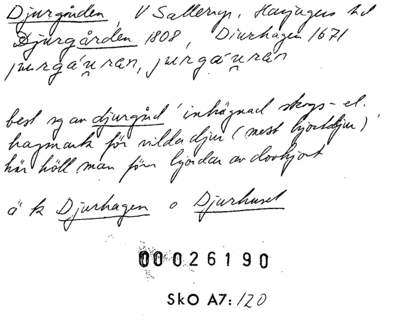 Djurgården, V Sallerup, Harjagers hd
Djurgården 1808, Diurhagen 1671
jurgáuran, jurgáurån
best sg av djurgård 'inhägnad skogs- el.
hagmark för vilda djur (mest hjortdjur)'
här höll man förr hjordar av dovhjort
ä k Djurhagen o Djurhuset
00026190
SkO A7:120